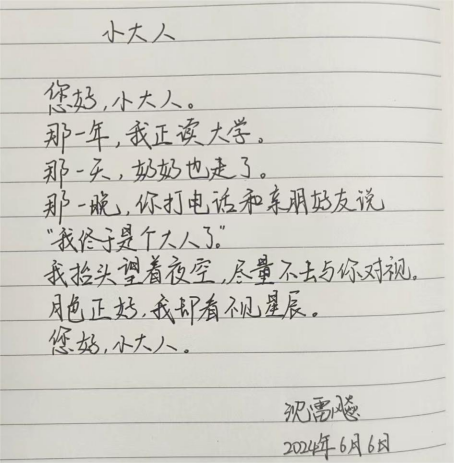 小大人
您好,小大人。
那一年,我正读大学。
那一天,奶奶也走了。
那一晚,你打电话和亲朋好友说
“我终于是个大人了。”
我抬头望着夜空,尽量不去与你对视。
月色正好,我却看不见星辰。
您好,小大人。
沈雷飚
2024年6月6日